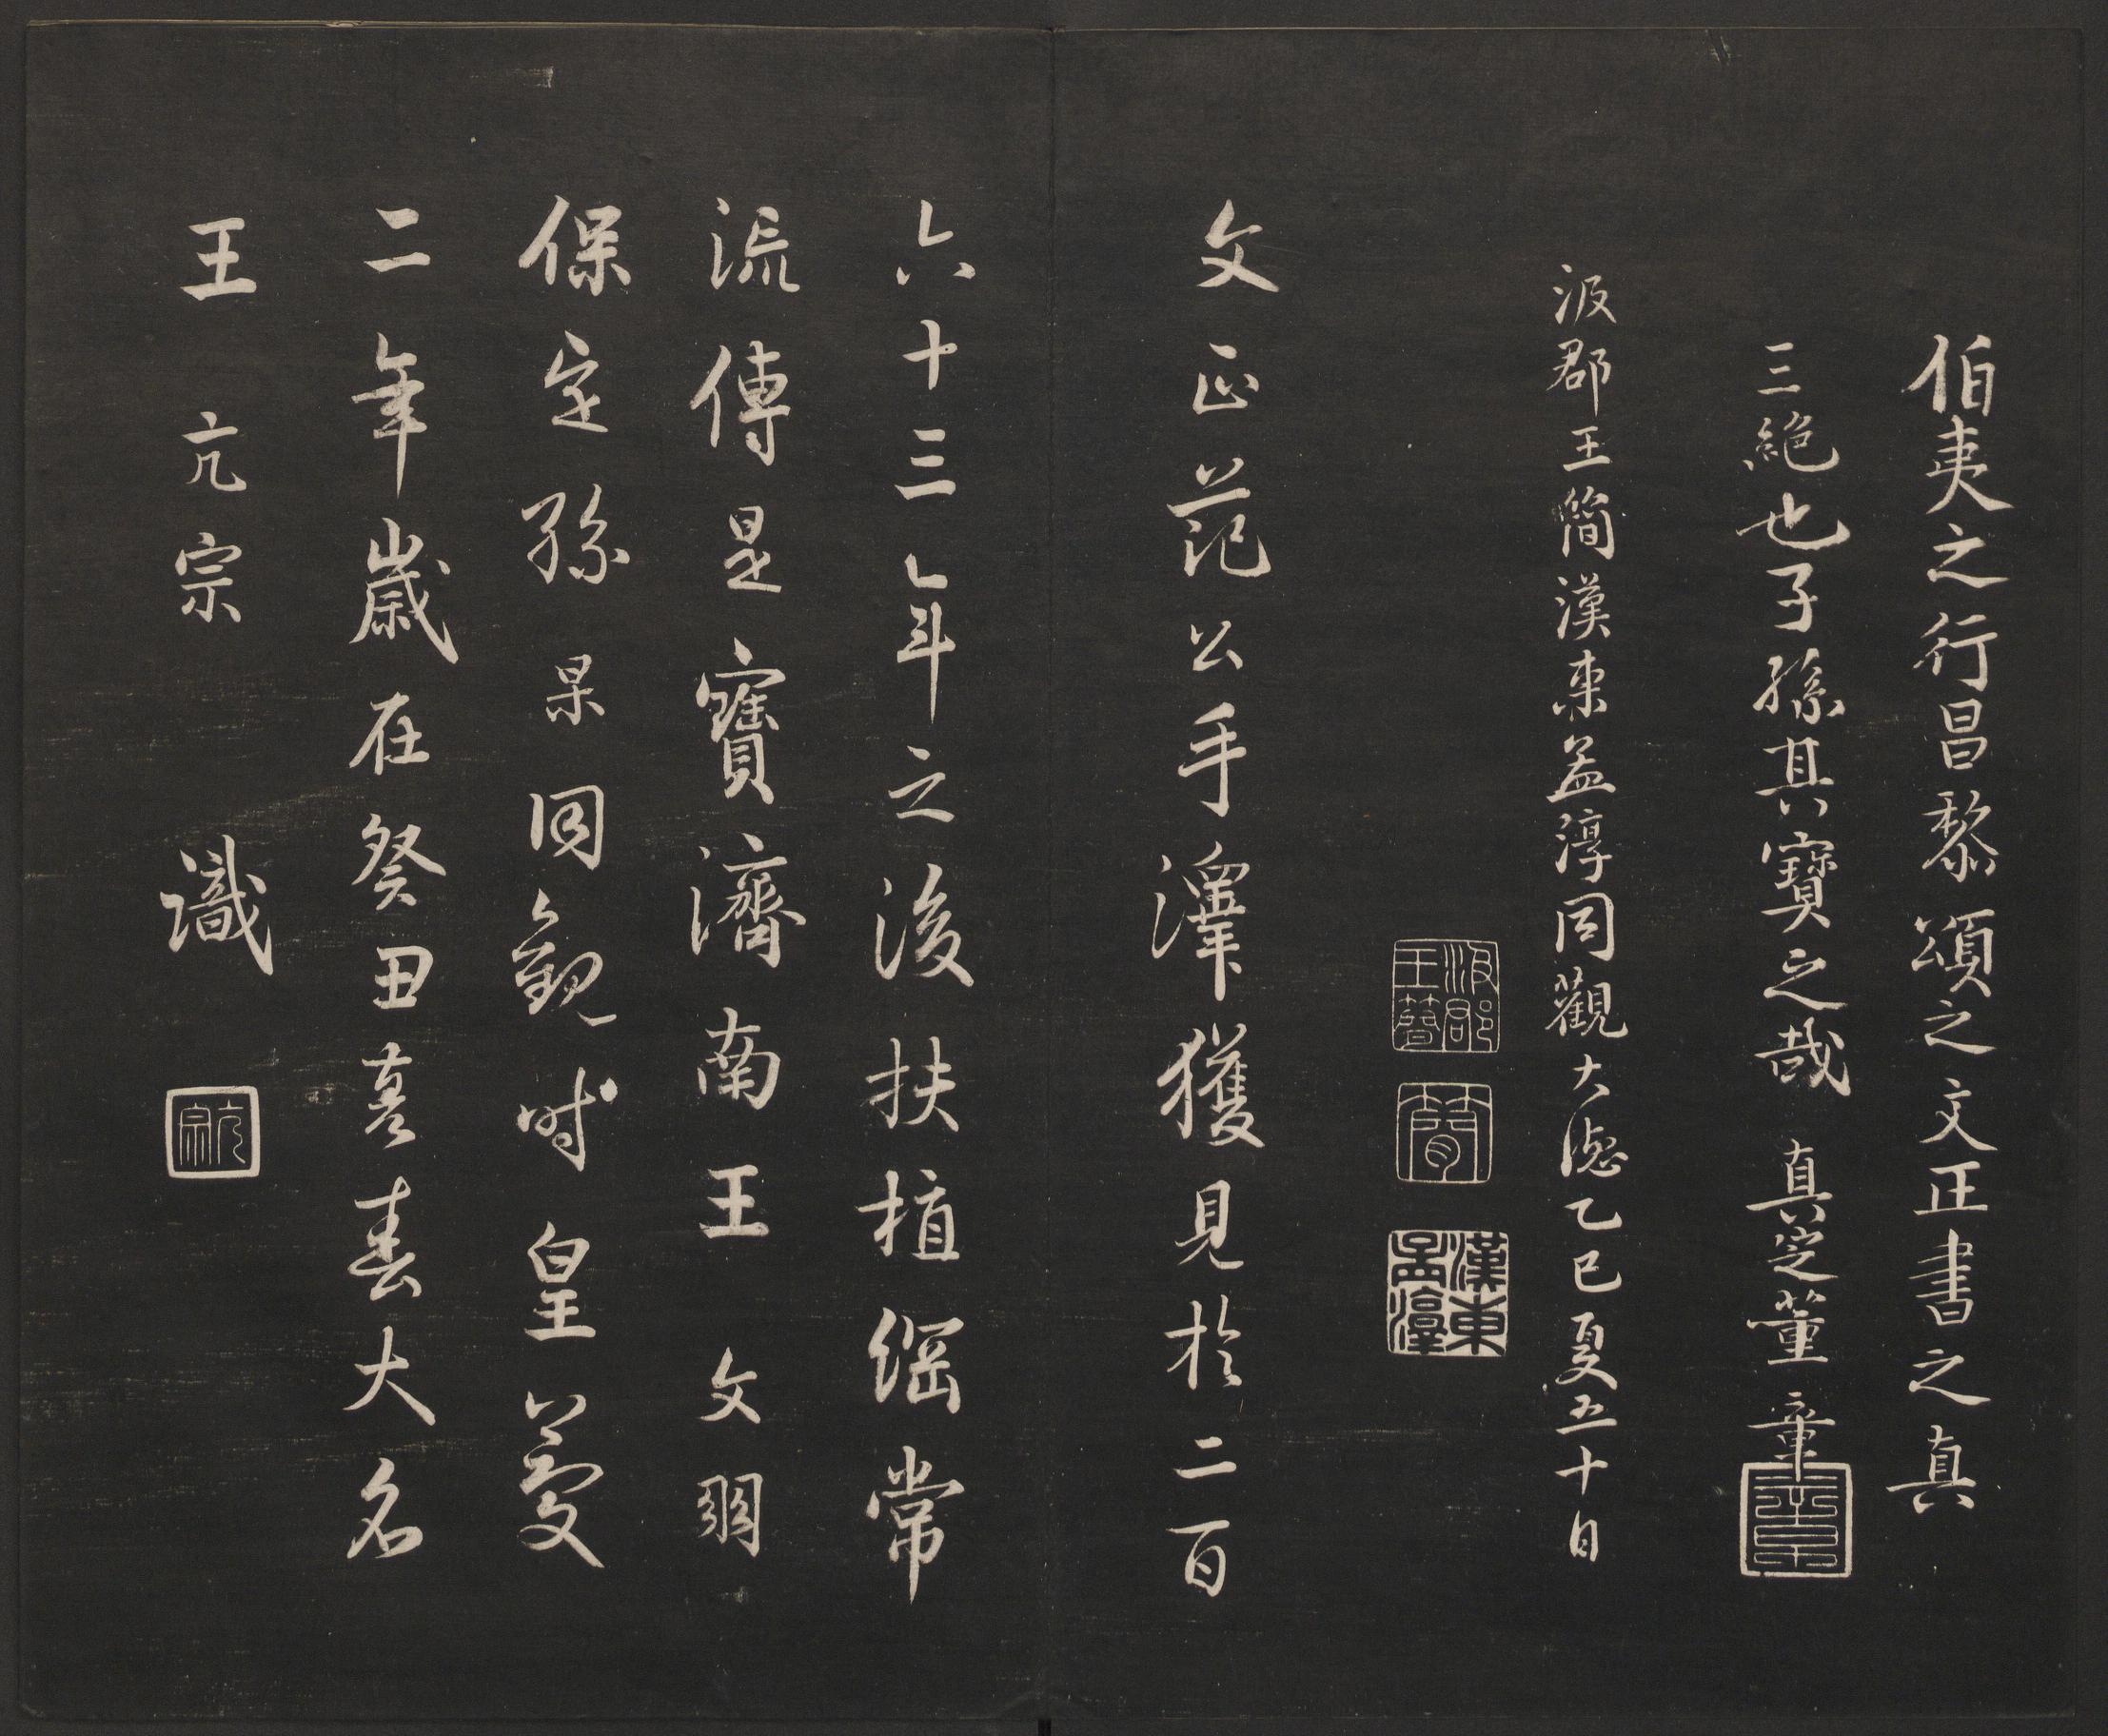 伯夷之行昌黎頌之文正書之真
三絶也子孫其寶之哉真定董章
汲郡王簡漢東孟淳同觀大德乙巳夏五十日
汲郡王簪
簡
漢東孟淳
文正范公手澤獲見於二百
六十三年之後扶植綱常
流傳是寶濟南王文羽
保定孫果同觀時皇慶
二年歲在癸丑喜春大名
王亢宗識
亢宗